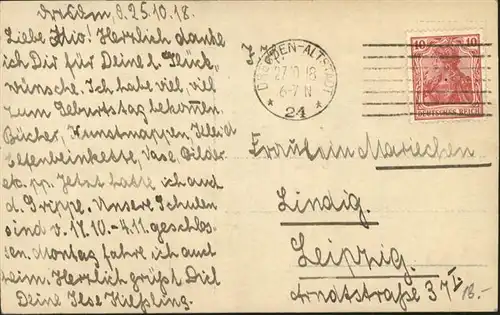 Dresden, d. 25.10.18.
Liebe Miο! Herrlich danke
ich Dir für Deine l. Glück
wünsche. Ich habe viel, viel
zum Geburtstag bekommen.
Bücher, Kunstmappen, Kleid
Elfenbeinkette, Vase, Bilder
etc. pp. Jetzt hatte ich auch
d. Grippe. Unsere Schulen
sind v. 17.10.-4.11. geschlos-
sen. Montag fahre ich auch
heim. Herzlich grüßt Dich
Deine Ilse Kießling.
DRESDEN-ALTSTADT
27.10.18
6-7 N
* 24 *
10 10
DEUTSCHES REICH
Fräulein Mariechen
Lindig.
Leipzig.
Arndtstraße 37 I.
18.-